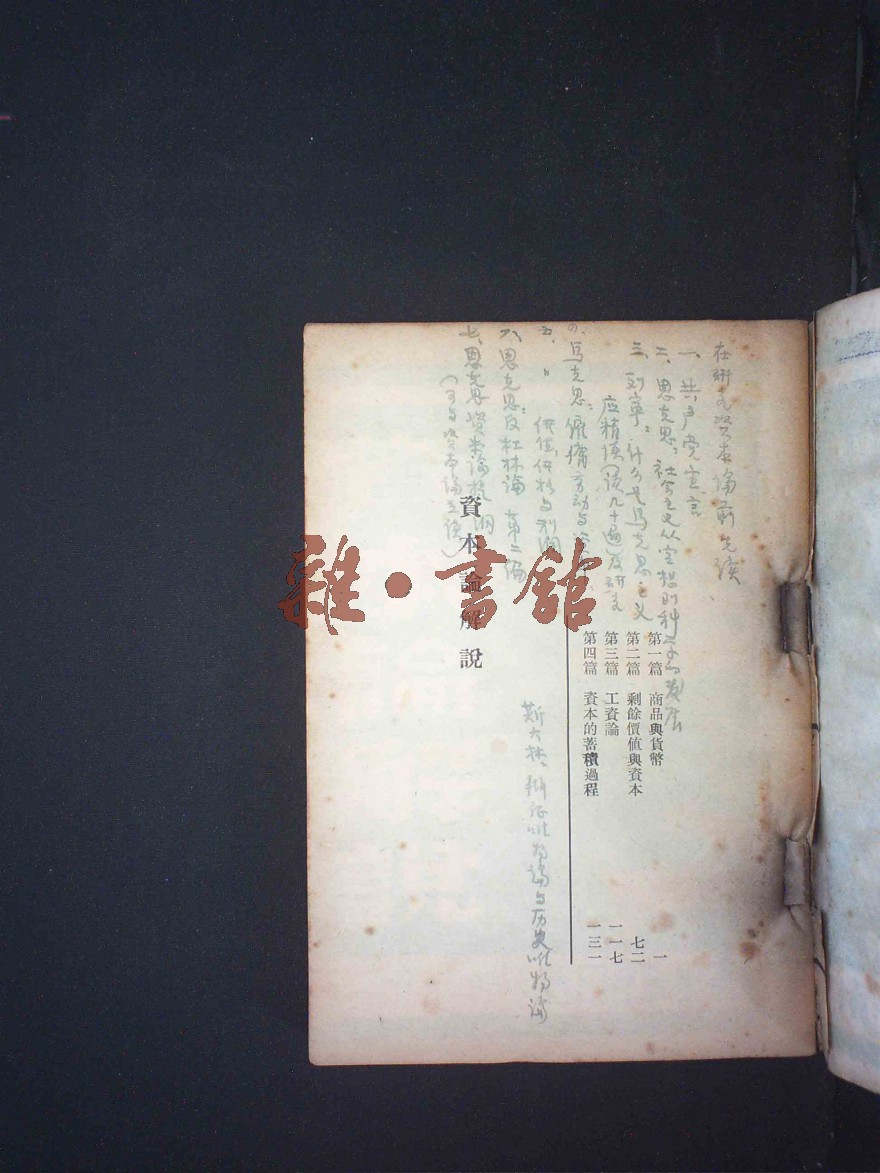 在研究资本論前先读
一、共产党宣言
二、恩克思：社会主义从空想到科学的发展
三、列宁：什么是马克思主义
应精读（读几十遍）及研究
四、马克思：雇傭劳动与
五、〃 价值价格与利润
六、恩克思：反杜林論 第二编
七、恩克思資本論
（可与资本論並读）
斯大林、辯证唯物論与历史唯物論
第一篇 商品與貨幣 一
第二篇 剩餘價值與資本 七二
第三篇 工資論 一一七
第四篇 資本的蓄積過程 一三一
資本論解說
雜·書館